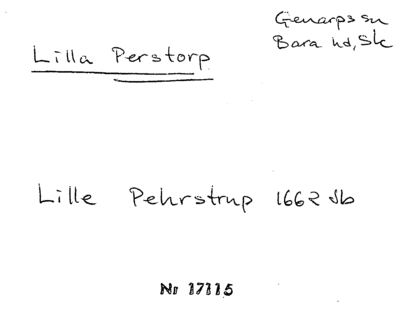 Genarps sn
Bara hd, Sk
Lilla Perstorp
Lille Pehrstrup 1662 Jb
Nr 17115